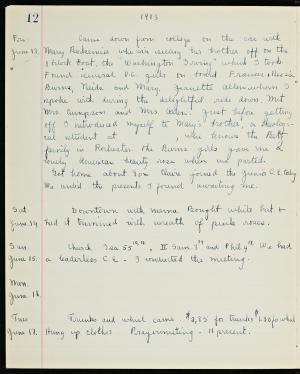 12 1913
Fri June 13. Came down from college on the car with
Mary who was seeing her brother off on the
boat, the "Washington Irving" which I took.
Found several V.C. girls on board Frances
Burns, and Mary, Jeanette whom I
spoke with during the delightful ride down. Met
Mrs Simpson and Mrs. Just before getting
off I introduced myself to Mary's brother, a
student at who knows the
family in Rochester. The Burns girls gave me a
lovely American beauty rose when we parted.
Got home about 8 pm Claire joined the Junior C.E. today
We undid the presents I found awaiting me.
Sat. June 14. Downtown with mamma Bought white hat &
had it trimmed with wreath of pink roses.
Sun. June 15. Church Isa 55 II Sam. and Phil 4 We had
a leaderless C.E. - I conducted the meeting.
Mon.
June 16.
Tues June 17. Trunks and wheel came. for trunks wheel
Hung up clothes Prayermeeting - 11 present.